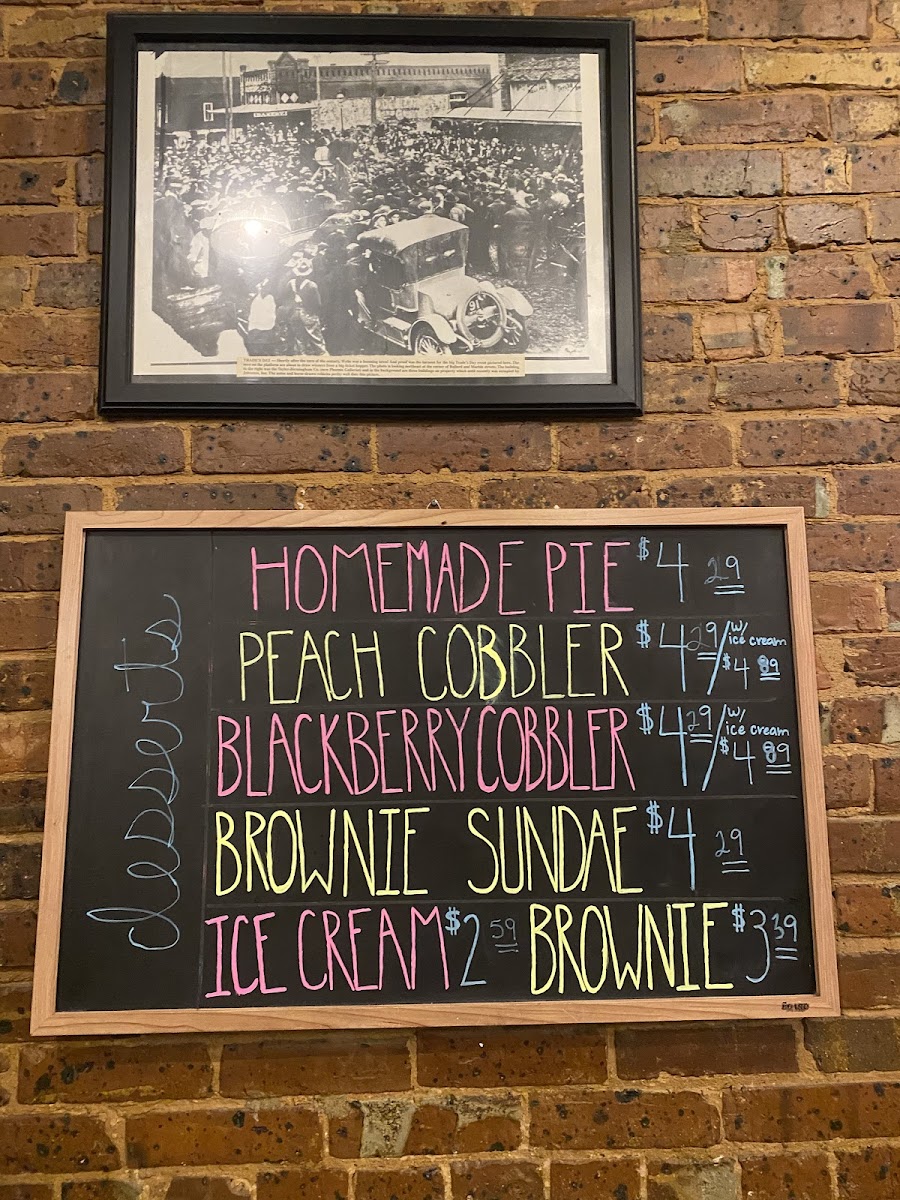 TRADE'S DAY
desserts
HOMEMADE PIE $4 29
PEACH COBBLER $4 29 / w/ ice cream $4 89
BLACKBERRY COBBLER $4 29 / w/ ice cream $4 89
BROWNIE SUNDAE $4 29
ICE CREAM $2 59 BROWNIE $3 39